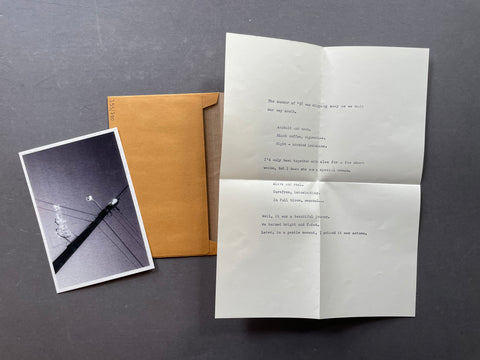 The summer of '9 was slipping away as we made
our way south.
Asphalt and neon.
Black coffee, cigarettes.
Night - scented
I'd only been together with Alex for a few short
weeks, but I knew she was a special woman.
Alert and real.
Carefree, intoxicating.
In full bloom, sensual...
Well, it was a beautiful journey.
We burned bright and faded.
Later, in a gentle moment, I